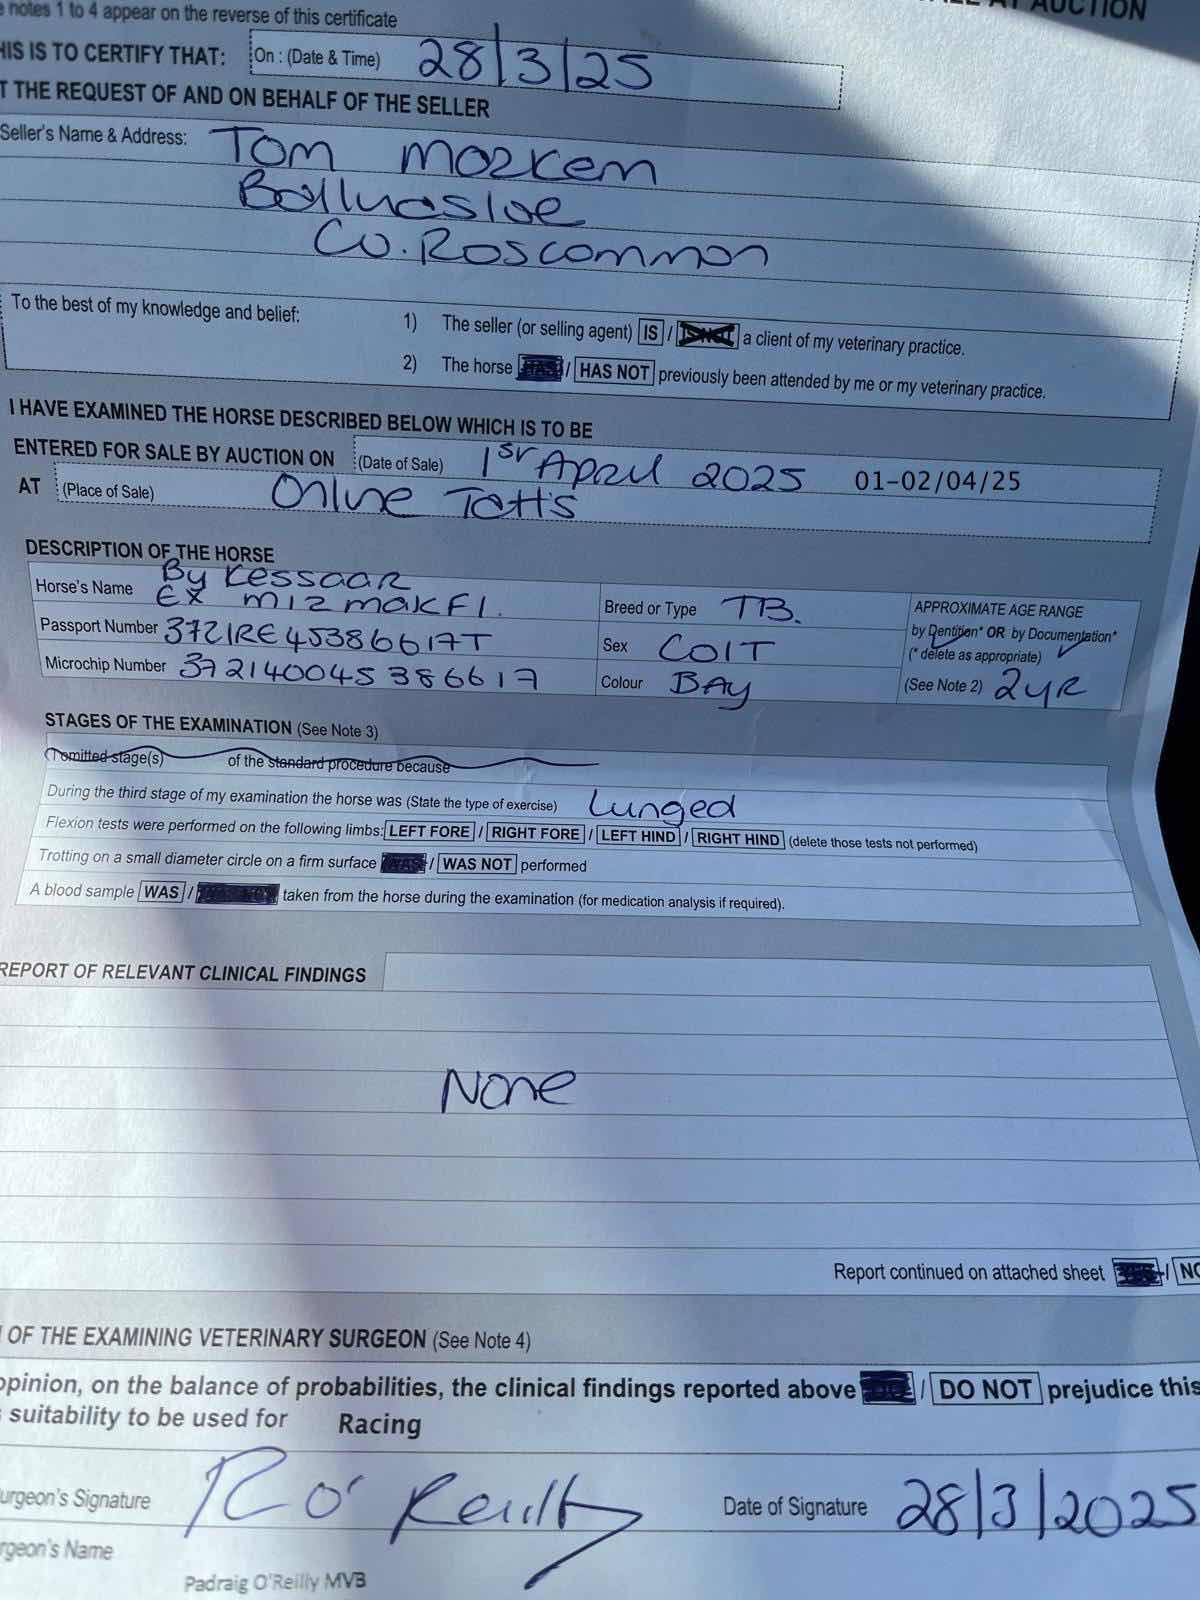 notes 1 to 4 appear on the reverse of this certificate
AT AUCTION
HIS IS TO CERTIFY THAT: On : (Date & Time) 28/3/25
T THE REQUEST OF AND ON BEHALF OF THE SELLER
Seller's Name & Address: Tom
Ballinasloe
Co. Roscommon
To the best of my knowledge and belief:
1) The seller (or selling agent) IS / IS NOT a client of my veterinary practice.
2) The horse HAS / HAS NOT previously been attended by me or my veterinary practice.
I HAVE EXAMINED THE HORSE DESCRIBED BELOW WHICH IS TO BE
ENTERED FOR SALE BY AUCTION ON (Date of Sale) 1st April 2025 01-02/04/25
AT (Place of Sale) Online Tatt's
DESCRIPTION OF THE HORSE
Horse's Name By Kessaar
Ex Mizmakfi.
Passport Number 372IRE45386617T
Microchip Number 372140045386617
Breed or Type TB.
Sex COlT
Colour BAY
APPROXIMATE AGE RANGE
by Dentition* OR by Documentation*
(* delete as appropriate)
(See Note 2) 2yr
STAGES OF THE EXAMINATION (See Note 3)
I omitted stage(s) of the standard procedure because
During the third stage of my examination the horse was (State the type of exercise) Lunged
Flexion tests were performed on the following limbs: LEFT FORE / RIGHT FORE / LEFT HIND / RIGHT HIND (delete those tests not performed)
Trotting on a small diameter circle on a firm surface WAS / WAS NOT performed
A blood sample WAS / taken from the horse during the examination (for medication analysis if required).
REPORT OF RELEVANT CLINICAL FINDINGS
None
Report continued on attached sheet YES / NO
OF THE EXAMINING VETERINARY SURGEON (See Note 4)
opinion, on the balance of probabilities, the clinical findings reported above DO / DO NOT prejudice this
suitability to be used for Racing
urgeon's Signature O'Reilly Date of Signature 28/3/2025
rgeon's Name
Padraig O'Reilly MVB